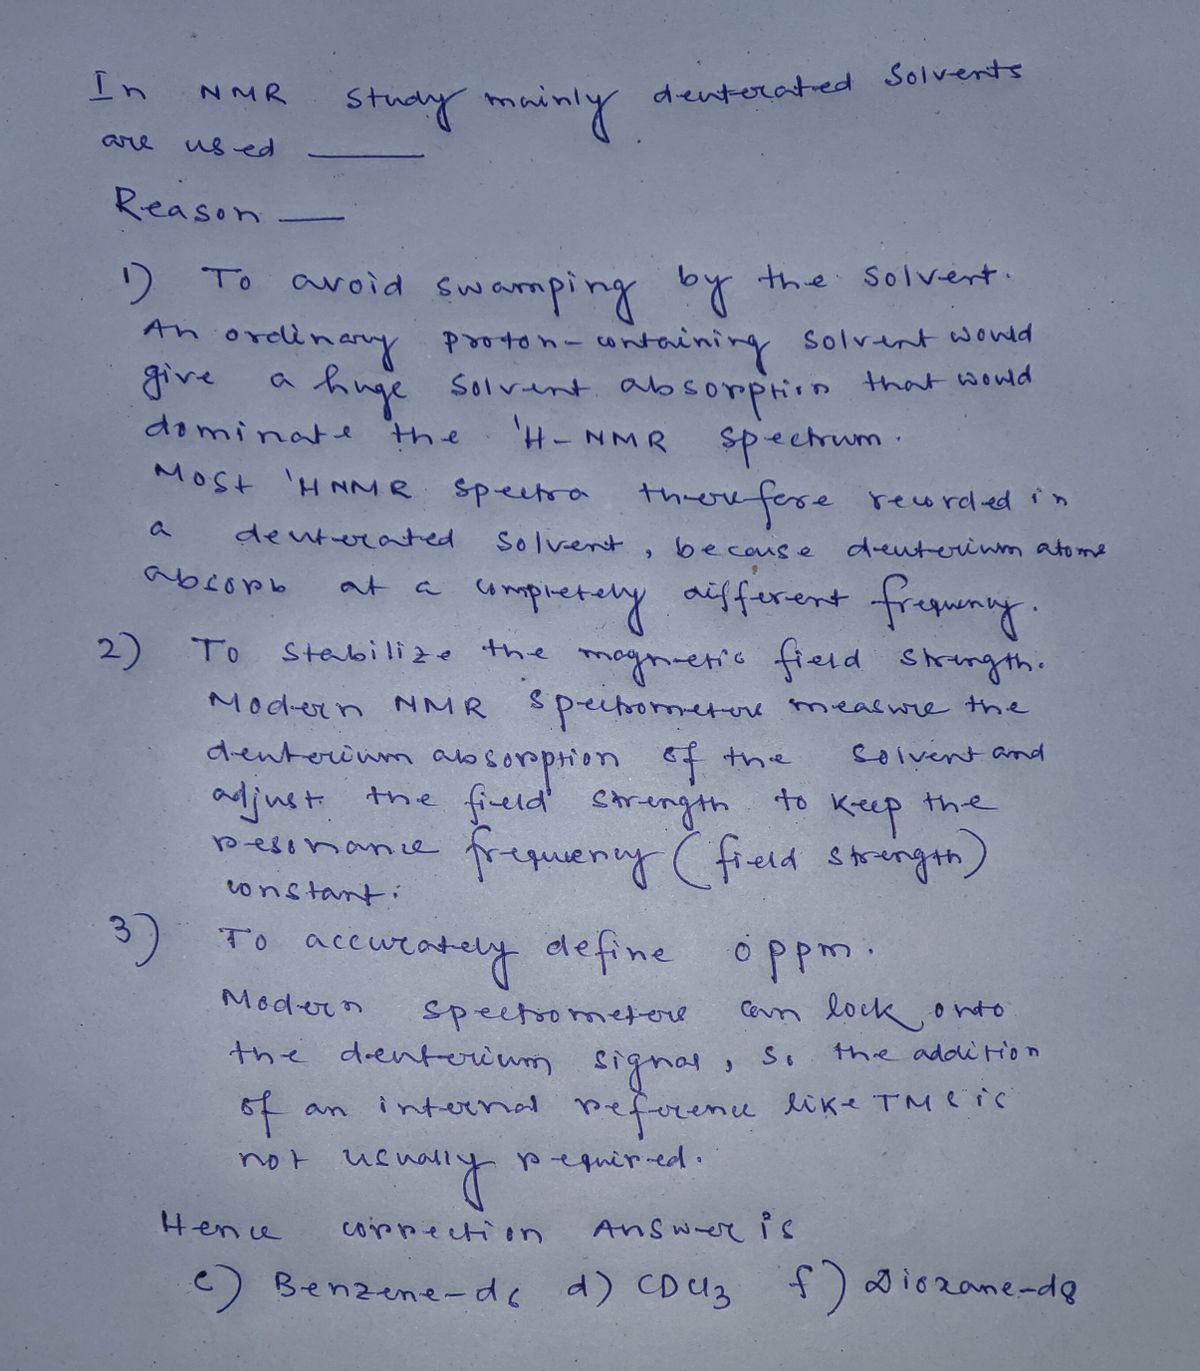 In NMR study mainly deuterated solvents
are used ——
Reason —
1) To avoid swamping by the solvent.
An ordinary proton-containing solvent would
give a huge solvent absorption that would
dominate the 'H-NMR spectrum.
Most 'HNMR spectra therefore recorded in
a deuterated solvent, because deuterium atoms
absorb at a completely different frequency.
2) To stabilize the magnetic field strength.
Modern NMR spectrometers measure the
deuterium absorption of the solvent and
adjust the field strength to keep the
resonance frequency (field strength)
constant.
3) To accurately define 0 ppm.
Modern spectrometers can lock onto
the deuterium signal, so the addition
of an internal reference like TMS is
not usually required.
Hence correction Answer is
c) Benzene-d6 d) CDCl3 f) Dioxane-d8